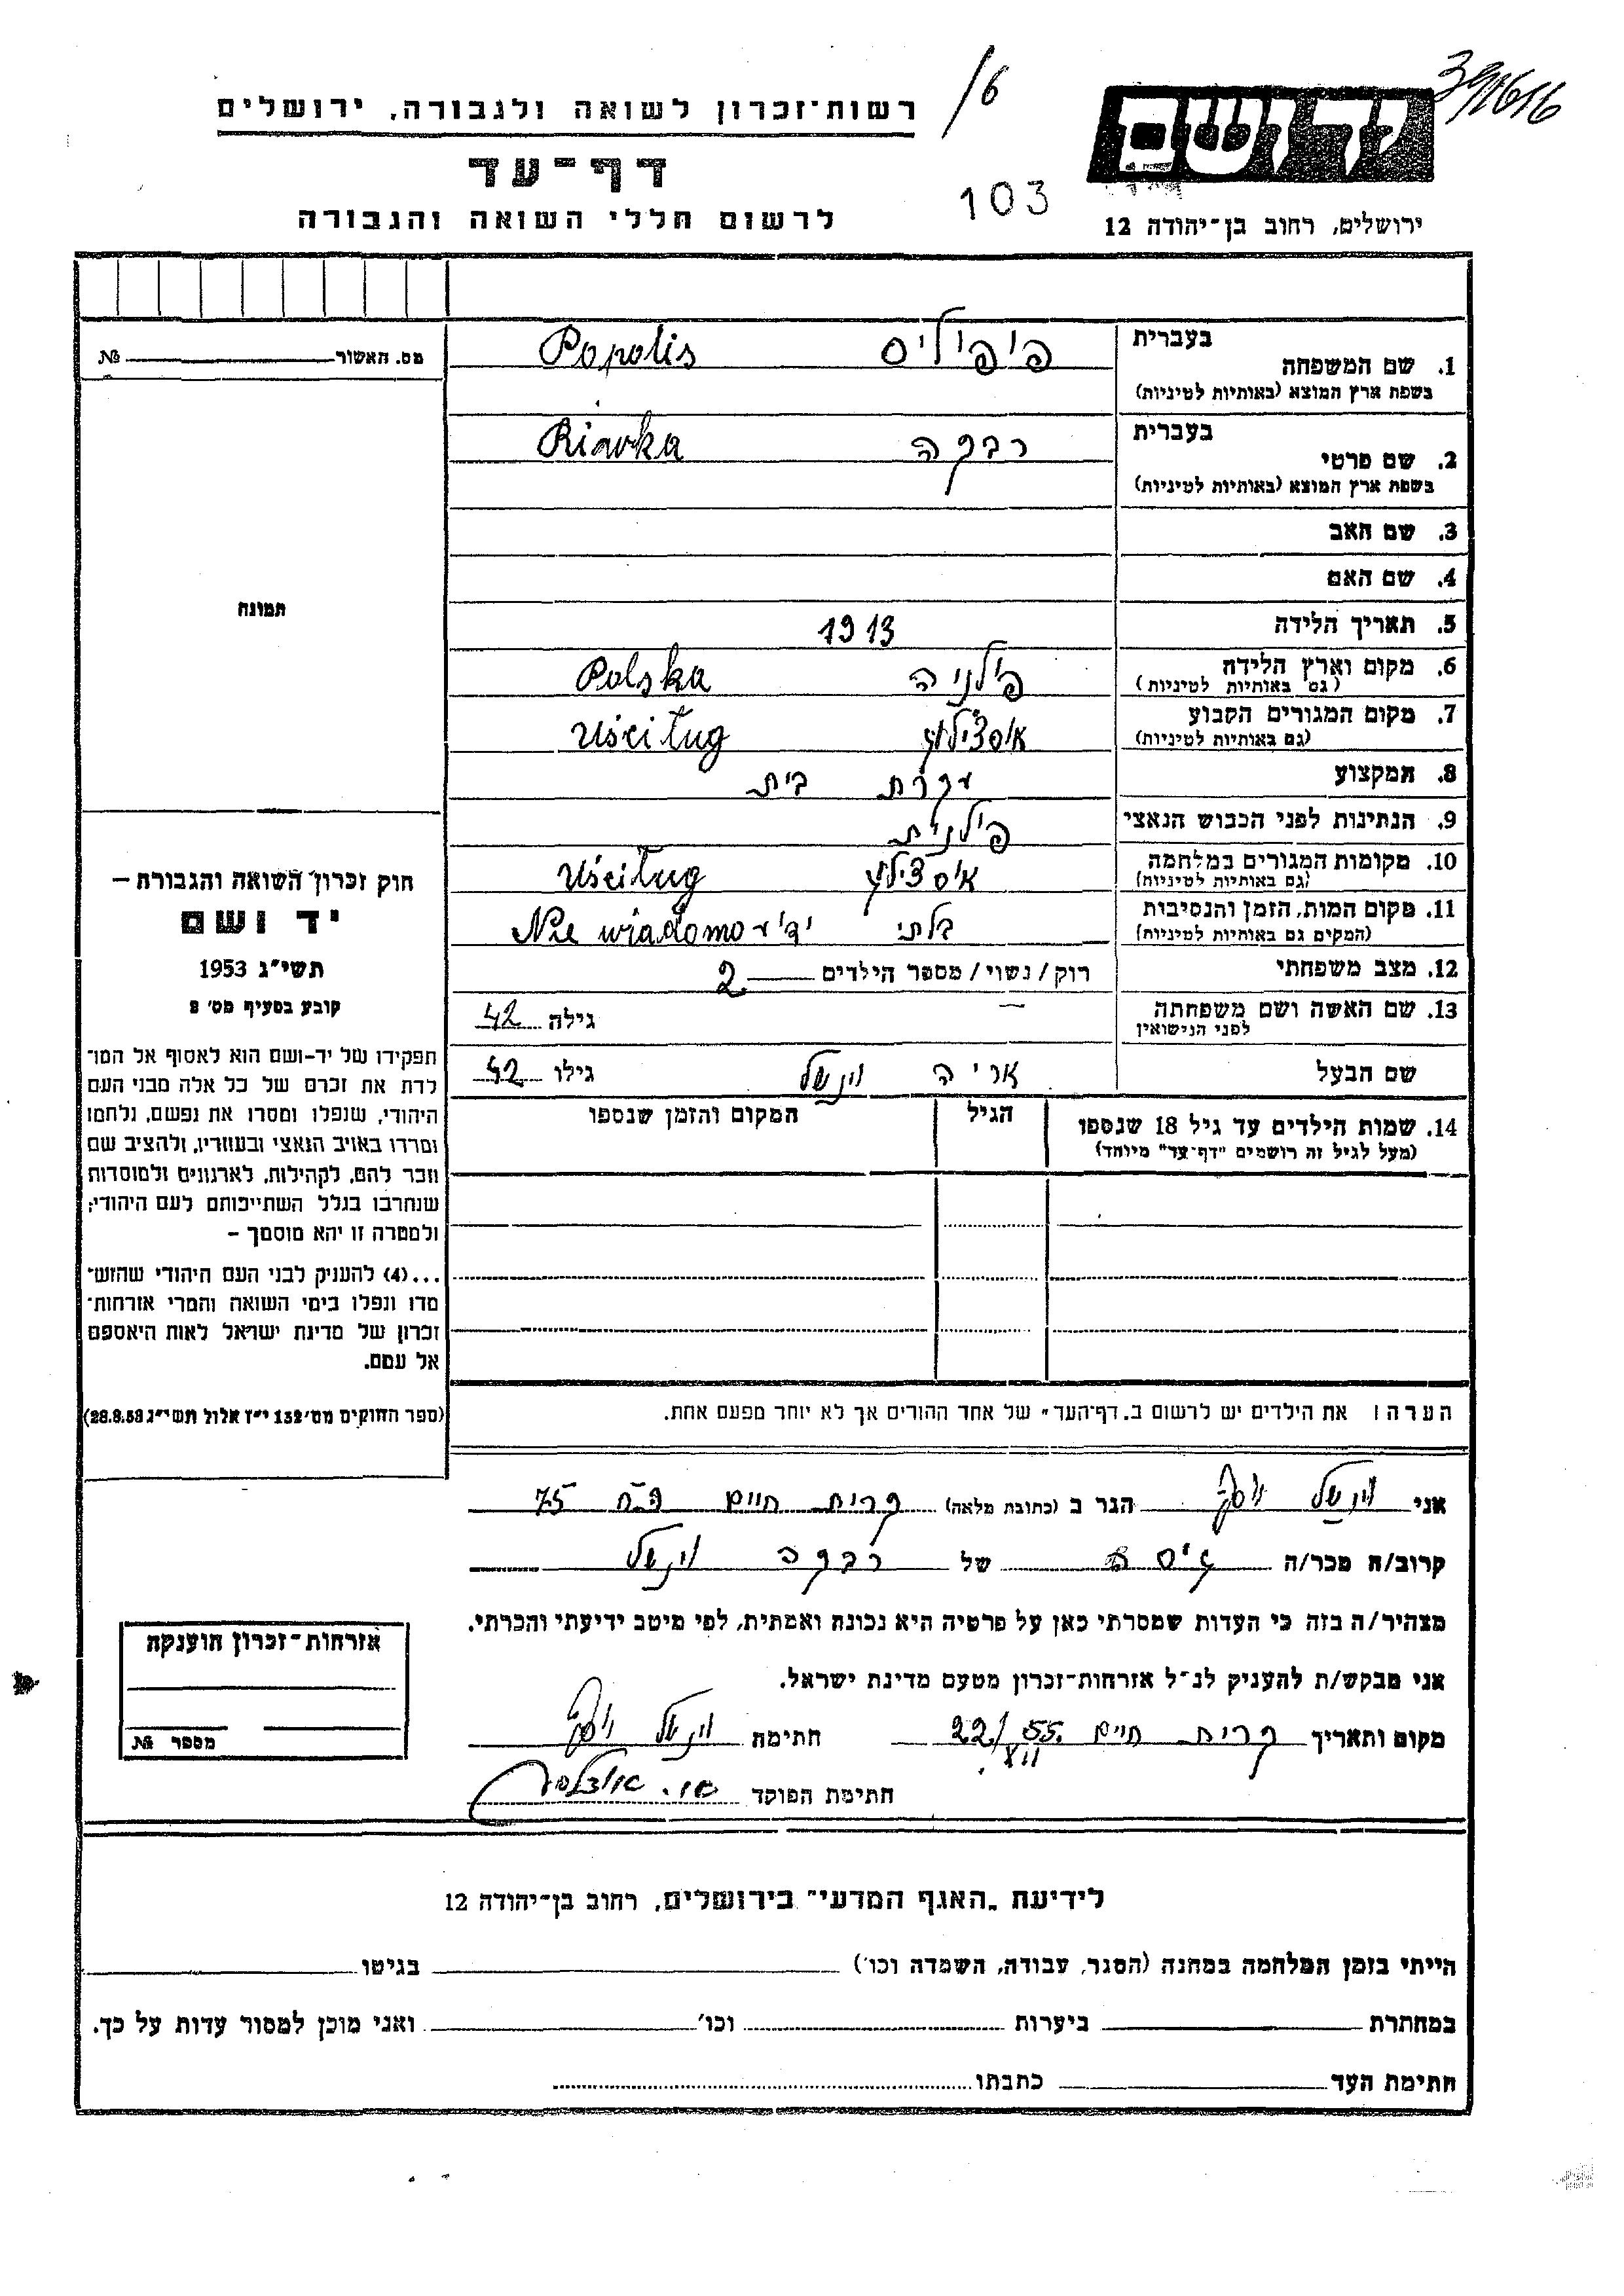 391616
16
רשות־זכרון לשואה ולגבורה, ירושלים
יד ושם
דף־עד
103
לרשום חללי השואה והגבורה
ירושלים, רחוב בן־יהודה 12
מס. האשור № 
בעברית
1. שם המשפחה פופוליס Popolis
בשפת ארץ המוצא (באותיות לטיניות)
בעברית
2. שם פרטי רבקה Riavka
בשפת ארץ המוצא (באותיות לטיניות)
3. שם האב
4. שם האם
תמונה
5. תאריך הלידה 1913
6. מקום וארץ הלידה פולניה Polska
(גם באותיות לטיניות)
7. מקום המגורים הקבוע אוסצילוג Uściług
(גם באותיות לטיניות)
8. המקצוע עקרת בית
9. הנתינות לפני הכבוש הנאצי פולנית
10. מקומות המגורים במלחמה אוסצילוג Uściług
(גם באותיות לטיניות)
11. מקום המות, הזמן והנסיבות בלתי ידוע Nie wiadomo
(המקום גם באותיות לטיניות)
12. מצב משפחתי רוק/נשוי/ מספר הילדים 2
13. שם האשה ושם משפחתה — גילה 42
לפני הנישואין
שם הבעל אריה וינשל גילו 42
14. שמות הילדים עד גיל 18 שנספו הגיל המקום והזמן שנספו
(מעל לגיל זה רושמים "דף־עד" מיוחד)
חוק זכרון השואה והגבורה —
יד ושם
תשי"ג 1953
קובע בסעיף מס' 2
תפקידו של יד-ושם הוא לאסוף אל המו־
לדת את זכרם של כל אלה מבני העם
היהודי, שנפלו ומסרו את נפשם, נלחמו
ומרדו באויב הנאצי ובעוזריו, ולהציב שם
וזכר להם, לקהילות, לארגונים ולמוסדות
שנחרבו בגלל השתייכותם לעם היהודי;
ולמטרה זו יהא מוסמך —
...(4) להעניק לבני העם היהודי שהוש־
מדו ונפלו בימי השואה והמרי אזרחות־
זכרון של מדינת ישראל לאות היאספם
אל עמם.
(ספר החוקים מס' 132 י"ז אלול תשי"ג 28.8.53)
הערה: את הילדים יש לרשום ב„דף־העד" של אחד ההורים אך לא יותר מפעם אחת.
אני וינשל יוסף הגר ב (כתובת מלאה) קרית חיים 75
קרוב/ה מכר/ה גיסה של רבקה וינשל
מצהיר/ה בזה כי העדות שמסרתי כאן על פרטיה היא נכונה ואמתית, לפי מיטב ידיעתי והכרתי.
אני מבקש/ת להעניק לנ"ל אזרחות־זכרון מטעם מדינת ישראל.
מקום ותאריך קרית חיים 22/VII 55. חתימה וינשל יוסף
חתימת הפוקד
אזרחות־זכרון הוענקה
מספר №
לידיעת „האגף המדעי" בירושלים, רחוב בן־יהודה 12
הייתי בזמן המלחמה במחנה (הסגר, עבודה, השמדה וכו') בגיטו
במחתרת ביערות וכו' ואני מוכן למסור עדות על כך.
חתימת העד כתבתו